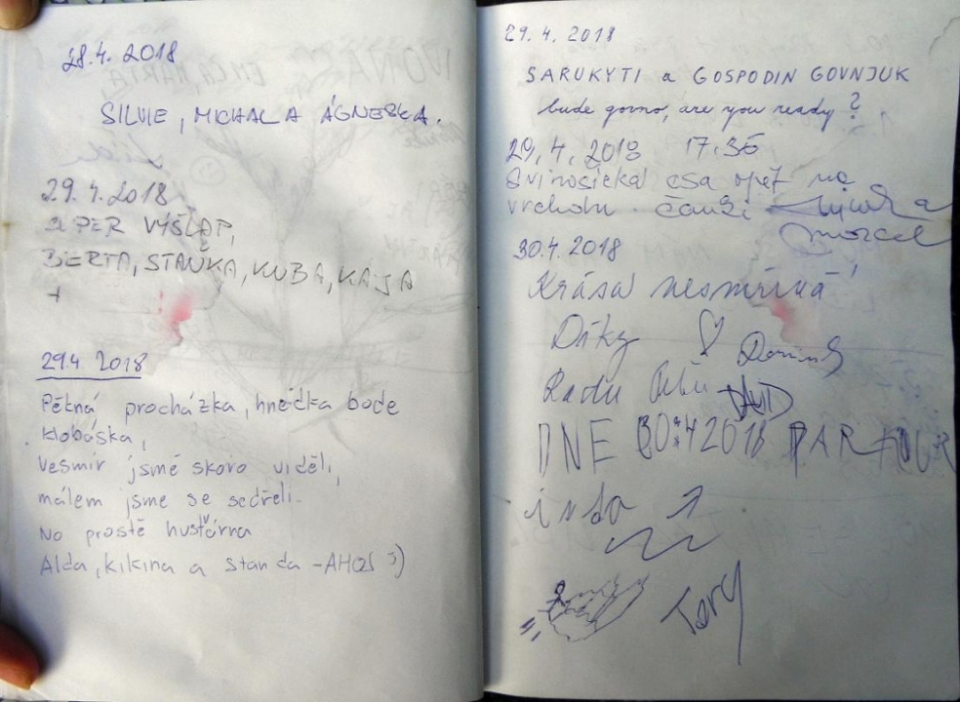 28.4.2018
SILVIE, MICHAL A ÁGNEŠKA.
29.4.2018
SUPER VÝŠLAP,
BERTA, STAŇKA, KUBA, KAJA
+
29.4 2018
Pěkná procházka, hnedka bode
klobáska,
Vesmír jsme skoro viděli,
málem jsme se sedřeli.
No prostě husťárna
Alda, kikina a standa - AHOJ :)
29.4.2018
SARUKYTI a GOSPODIN GOVNJUK
bude govno, are you ready?
29.4.2018 17:35
opět na
vrcholu.
30.4.2018
Krása nesmírná!
Díky
Radu
DAVID
DNE 30.4 2018 PARKOUR
Tery